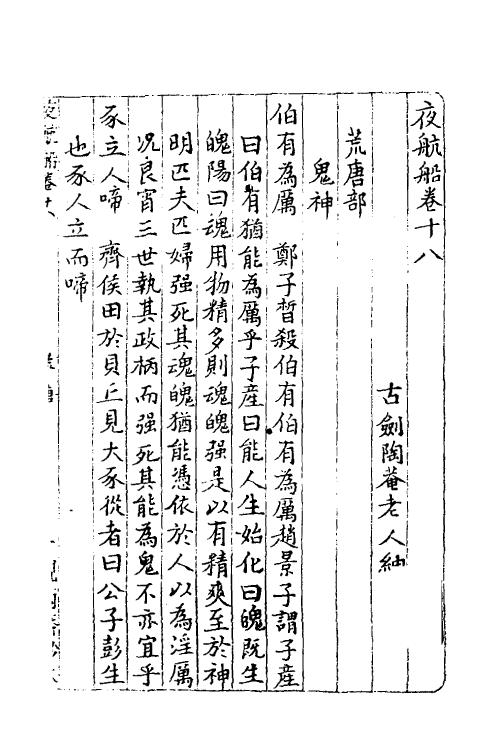 夜航船卷十八
古劍陶菴老人紬
荒唐部
鬼神
伯有為厲　鄭子晳殺伯有伯有為厲趙景子謂子產
曰伯有猶能為厲乎子產曰能人生始化曰魄既生
魄陽曰魂用物精多則魂魄强是以有精爽至於神
明匹夫匹婦强死其魂魄猶能憑依於人以為淫厲
况良宵三世執其政柄而强死其能為鬼不亦宜乎
豕立人啼　齊侯田於貝丘見大豕從者曰公子彭生
也豕人立而啼